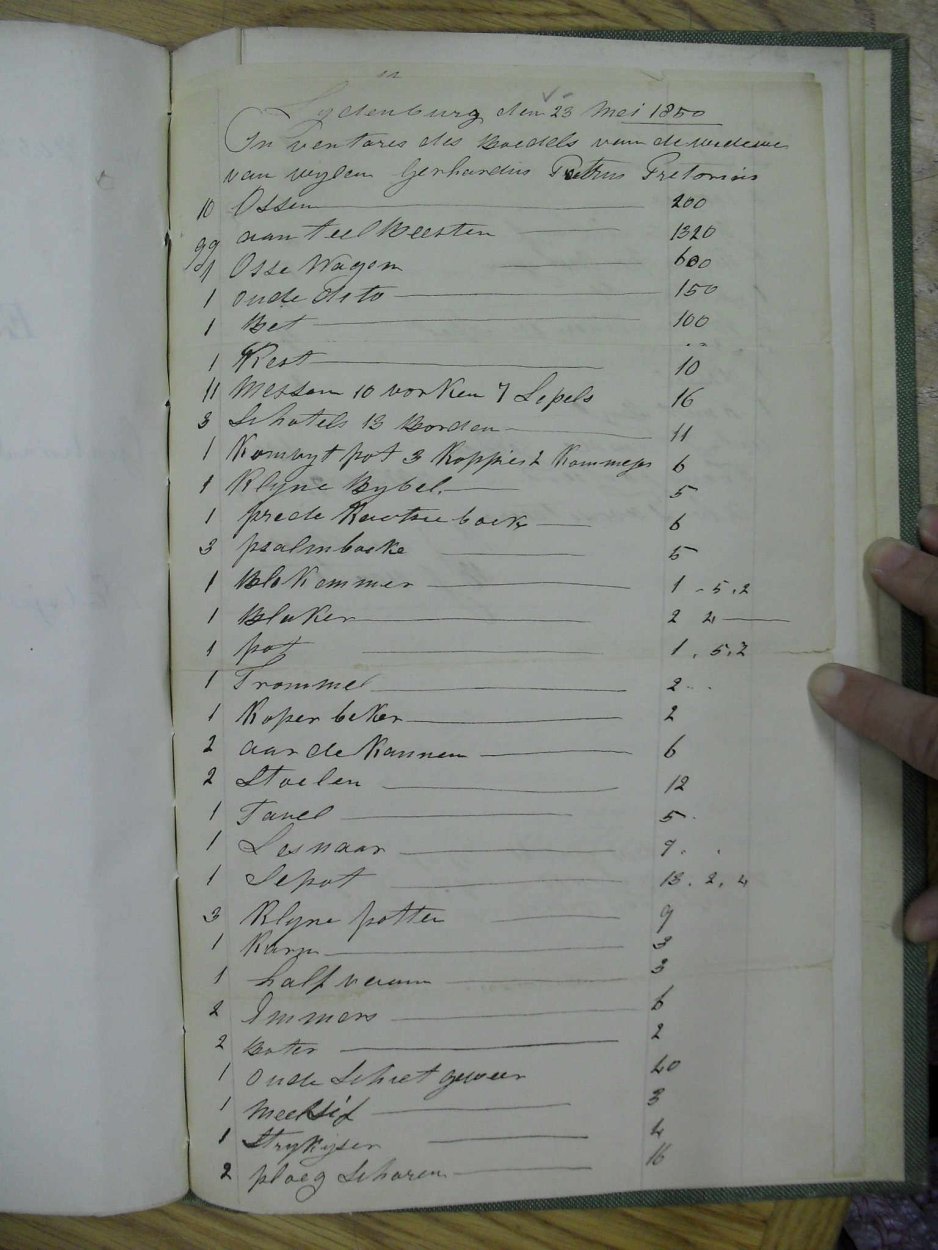 Lydenburg den 23 Mei 1850
In ventaris des Boedels van de wedewe
van wylen Gerhardus Petrus Pretorius
10 Ossen 200
99 aanteel Beesten 1320
1 Osse Wagen 600
1 oude dito 150
1 Bet 100
1 Kest 10
11 Messen 10 vorken 7 Lepels 16
3 Schotels 13 Borden 11
1 Komvyt pot 3 Koppies 2 Kommejes 6
1 Klyne Bybel 5
1 prede Kaatsie boek 6
3 psalmboeke 5
1 Blekemmer 1 - 5 . 2
1 Blaker 2 2
1 pot 1 . 5 . 2
1 Trommel 2
1 Koper beker 2
2 aarde Kannen 6
2 Stoelen 12
1 Tavel 5
1 Lesnaar 7
1 Sepot 13 . 2 . 4
3 Klyne potten 9
1 Karn 3
1 half 3
2 Emmers 6
2 2
1 oude Schiet geweer 20
1 meelsif 3
1 Strykyser 4
2 ploeg Scharen 16